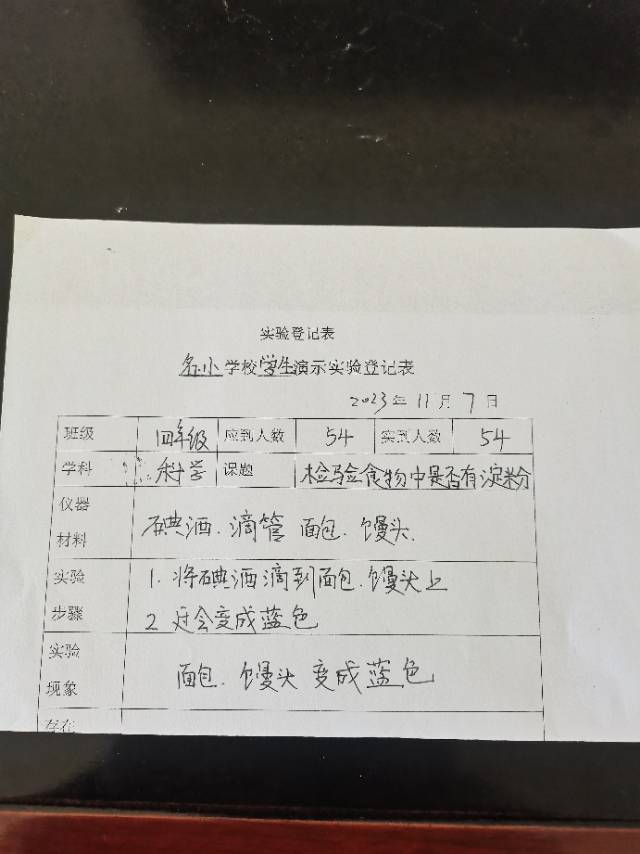 实验登记表
名小学校学生演示实验登记表
2023年11月7日
班级 四年级 应到人数 54 实到人数 54
学科 科学 课题 检验食物中是否有淀粉
仪器
材料
碘酒.滴管 面包.馒头.
实验
步骤
1.将碘酒滴到面包.馒头上
2.还会变成蓝色
实验
现象
面包.馒头变成蓝色
存在